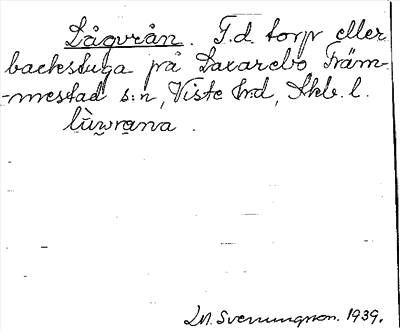 Lågvrån. F.d. torp eller
backstuga på Laxarebo Främ-
-mestad s:n, Viste hd, Skb. l.
lùwrana.
Svenungson. 1939.